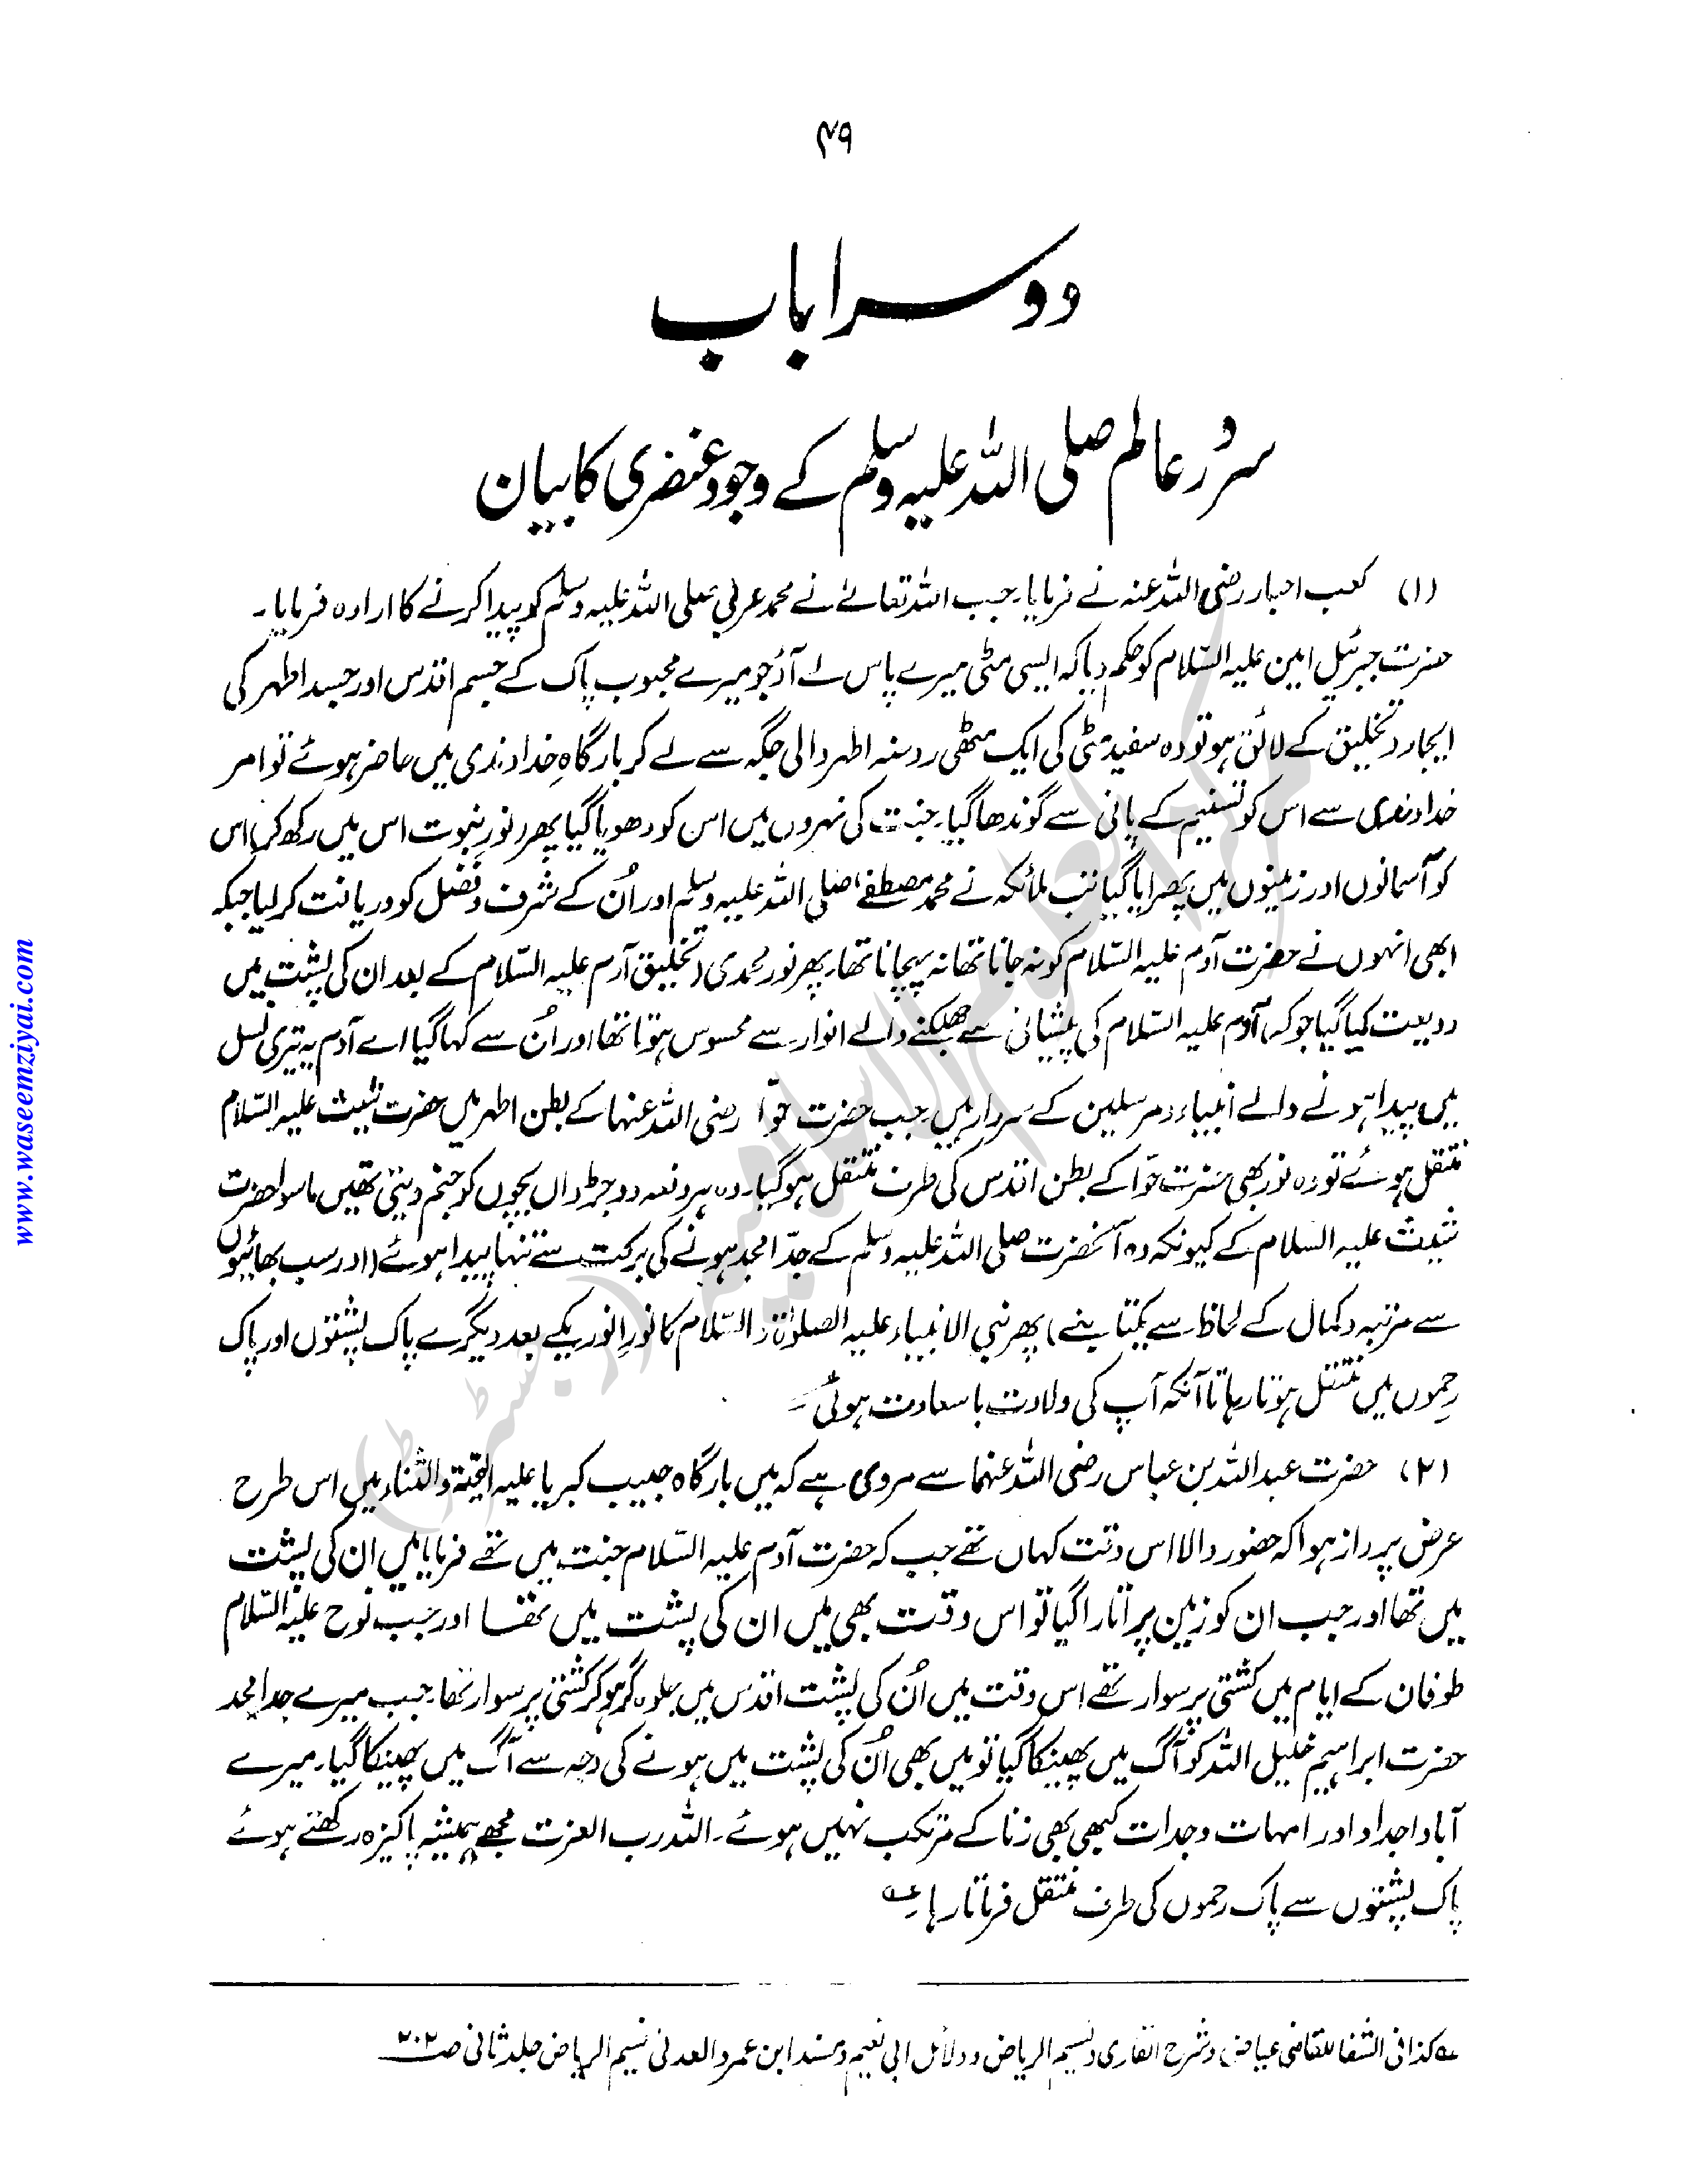 ۴۹
دوسرا باب
سرورِ عالم صلی اللہ علیہ وسلم کے وجود عنصری کا بیان
(۱) کعب احبار رضی اللہ عنہ نے فرمایا۔ جب اللہ تعالےٰ نے محمد عربی صلی اللہ علیہ وسلم کو پیدا کرنے کا ارادہ فرمایا۔
حضرت جبرئیل امین علیہ السّلام کو حکم دیا کہ ایسی مٹی میرے پاس لے آؤ جو میرے محبوب پاک کے جسم اقدس اور جسد اطہر کی
ایجاد و تخلیق کے لائق ہو تو وہ سفید مٹی کی ایک مٹھی روضہ اطہر والی جگہ سے لے کر بارگاہِ خداوندی میں حاضر ہوئے تو امر
خداوندی سے اس کو تسنیم کے پانی سے گوندھا گیا۔ جنت کی نہروں میں اس کو دھویا گیا پھر نورِ نبوت اس میں رکھ کر اس
کو آسمانوں اور زمینوں میں پھرایا گیا تب ملائکہ نے محمد مصطفےٰ صلی اللہ علیہ وسلم اور اُن کے شرف و فضل کو دریافت کر لیا جبکہ
ابھی انہوں نے حضرت آدم علیہ السّلام کو نہ جانا تھا نہ پہچانا تھا۔ پھر نور محمدی (تخلیق آدم علیہ السّلام کے بعد ان کی پشت میں
ودیعت کیا گیا جو کہ آدم علیہ السّلام کی پیشانی سے جھلکنے والے انوار سے محسوس ہوتا تھا اور اُن سے کہا گیا اے آدم یہ تیری نسل
میں پیدا ہونے والے انبیاء و مرسلین کے سردار ہیں۔ جب حضرت حوّا رضی اللہ عنہا کے بطن اطہر میں حضرت شیث علیہ السّلام
منتقل ہوئے تو وہ نور بھی حضرت حوّا کے بطن اقدس کی طرف منتقل ہو گیا۔ وہ ہر دفعہ دو جڑواں بچوں کو جنم دیتی تھیں ماسوا حضرت
شیث علیہ السلام کے کیونکہ وہ آنحضرت صلی اللہ علیہ وسلم کے جدّ امجد ہونے کی برکت سے تنہا پیدا ہوئے (اور سب بھائیوں
سے مرتبہ و کمال کے لحاظ سے یکتا بنے) پھر نبی الانبیاء علیہ الصلوٰۃ والسّلام کا نورِ انور یکے بعد دیگرے پاک پشتوں اور پاک
رحموں میں منتقل ہوتا رہا تا آنکہ آپ کی ولادت باسعادت ہوئی
(۲) حضرت عبداللہ بن عباس رضی اللہ عنہما سے مروی ہے کہ میں بارگاہ حبیب کبریا علیہ التحیۃ والثناء میں اس طرح
عرض پرداز ہوا کہ حضور والا اس وقت کہاں تھے جب کہ حضرت آدم علیہ السّلام جنت میں تھے فرمایا میں ان کی پشت
میں تھا اور جب ان کو زمین پر اتارا گیا تو اس وقت بھی میں ان کی پشت میں تھا اور جب نوح علیہ السّلام
طوفان کے ایام میں کشتی پر سوار تھے اس وقت میں اُن کی پشت اقدس میں جلوہ گر ہو کر کشتی پر سوار تھا۔ جب میرے جد امجد
حضرت ابراہیم خلیل اللہ کو آگ میں پھینکا گیا تو میں بھی اُن کی پشت میں ہونے کی وجہ سے آگ میں پھینکا گیا۔ میرے
آباد اجداد اور امہات و جدات کبھی بھی زنا کے مرتکب نہیں ہوئے۔ اللہ رب العزت مجھے ہمیشہ پاکیزہ رکھتے ہوئے
پاک پشتوں سے پاک رحموں کی طرف منتقل فرماتا رہا۔ ؎
؎ کذا فی الشفا للقاضی عیاض و شرح القاری و نسیم الریاض و دلائل ابی نعیم و مسند ابن عمرو العدنی نسیم الریاض جلد ثانی صـ ۲۰۲
www.waseemziyai.com